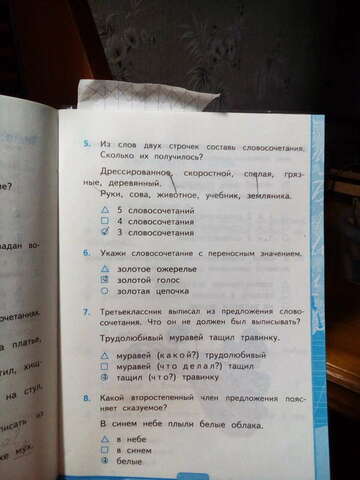 ние?
адан во-
очетаниях.
а платье,
тил, хищ-
на стул,
писать из
же мух.
5. Из слов двух строчек составь словосочетания.
Сколько их получилось?
Дрессированное, скоростной, спелая, гряз-
ные, деревянный.
Руки, сова, животное, учебник, земляника.
5 словосочетаний
4 словосочетания
3 словосочетания
6. Укажи словосочетание с переносным значением.
золотое ожерелье
золотой голос
золотая цепочка
7. Третьеклассник выписал из предложения слово-
сочетания. Что он не должен был выписывать?
Трудолюбивый муравей тащил травинку.
муравей (какой?) трудолюбивый
муравей (что делал?) тащил
тащил (что?) травинку
8. Какой второстепенный член предложения пояс-
няет сказуемое?
В синем небе плыли белые облака.
в небе
в синем
белые